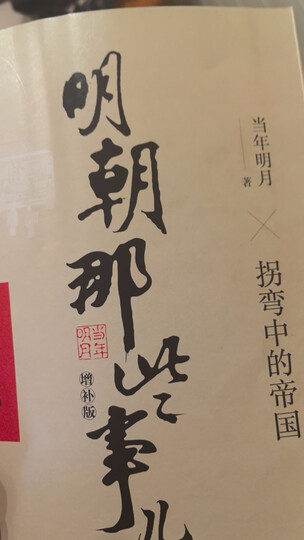 当年明月
著
×
拐弯中的帝国
明朝那些事儿
当年
明月
增补版